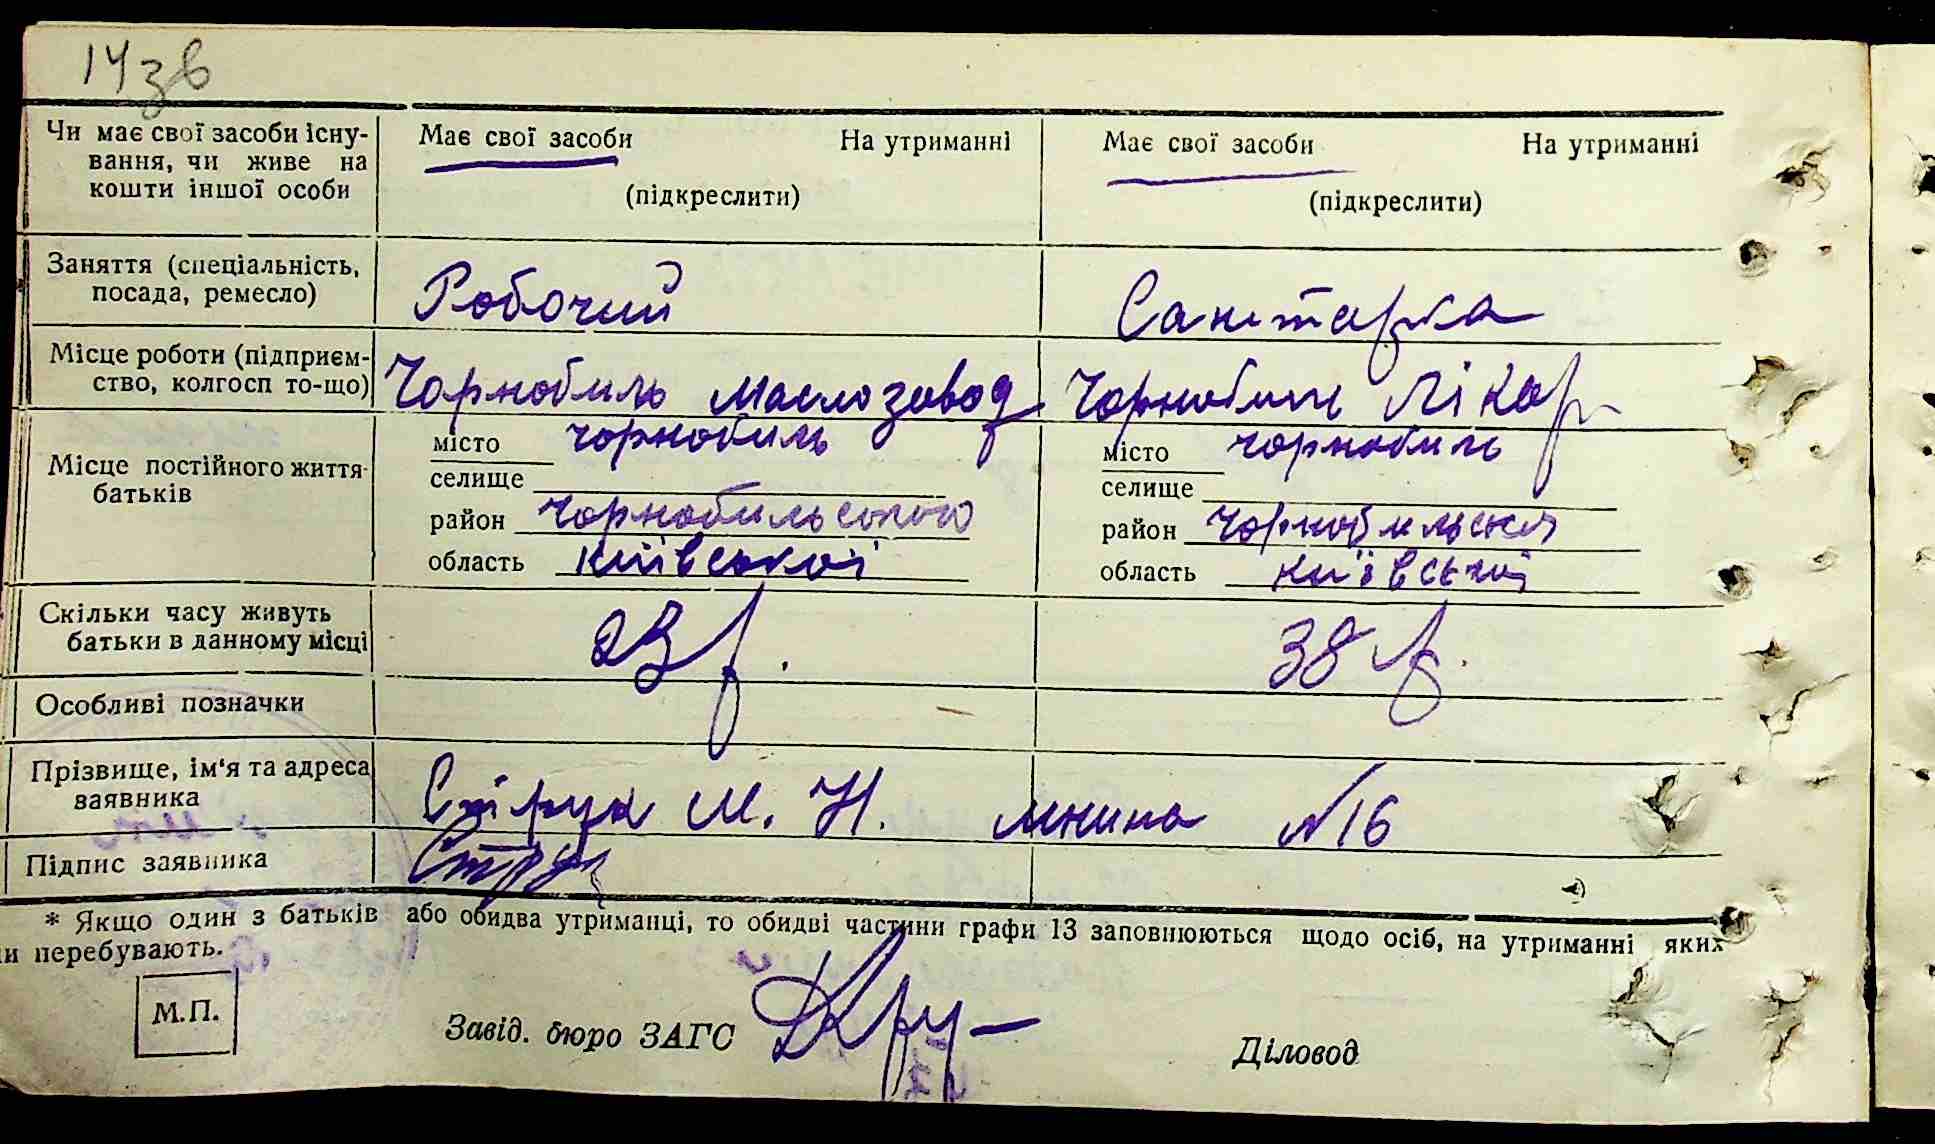 14 зв
Чи має свої засоби існу-
вання, чи живе на
кошти іншої особи
Має свої засоби На утриманні
(підкреслити)
Має свої засоби На утриманні
(підкреслити)
Заняття (спеціальність,
посада, ремесло)
Робочий
Санітарка
Місце роботи (підприєм-
ство, колгосп то-що)
Чорнобиль маслозавод
Чорнобиль Лікар
Місце постійного життя
батьків
місто чорнобиль
селище
район чорнобильського
область київської
місто чорнобиль
селище
район чорнобильськ
область київської
Скільки часу живуть
батьки в данному місці
23 р.
38 р.
Особливі позначки
Прізвище, ім'я та адреса
заявника
М. Н. №16
Підпис заявника
* Якщо один з батьків або обидва утриманці, то обидві частини графи 13 заповнюються щодо осіб, на утриманні яких
и перебувають.
М.П.
Завід. бюро ЗАГС
Діловод